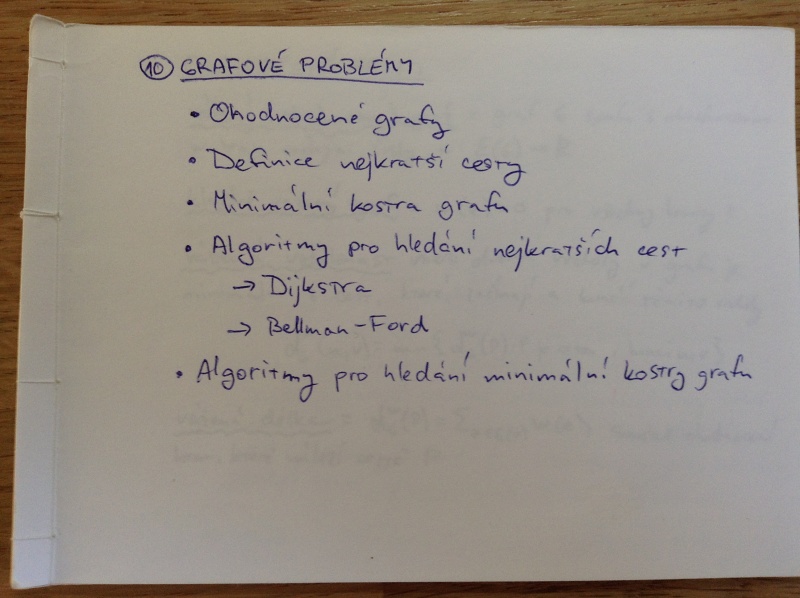 10 GRAFOVÉ PROBLÉMY
• Ohodnocené grafy
• Definice nejkratší cesty
• Minimální kostra grafu
• Algoritmy pro hledání nejkratších cest
→ Dijkstra
→ Bellman-Ford
• Algoritmy pro hledání minimální kostry grafu